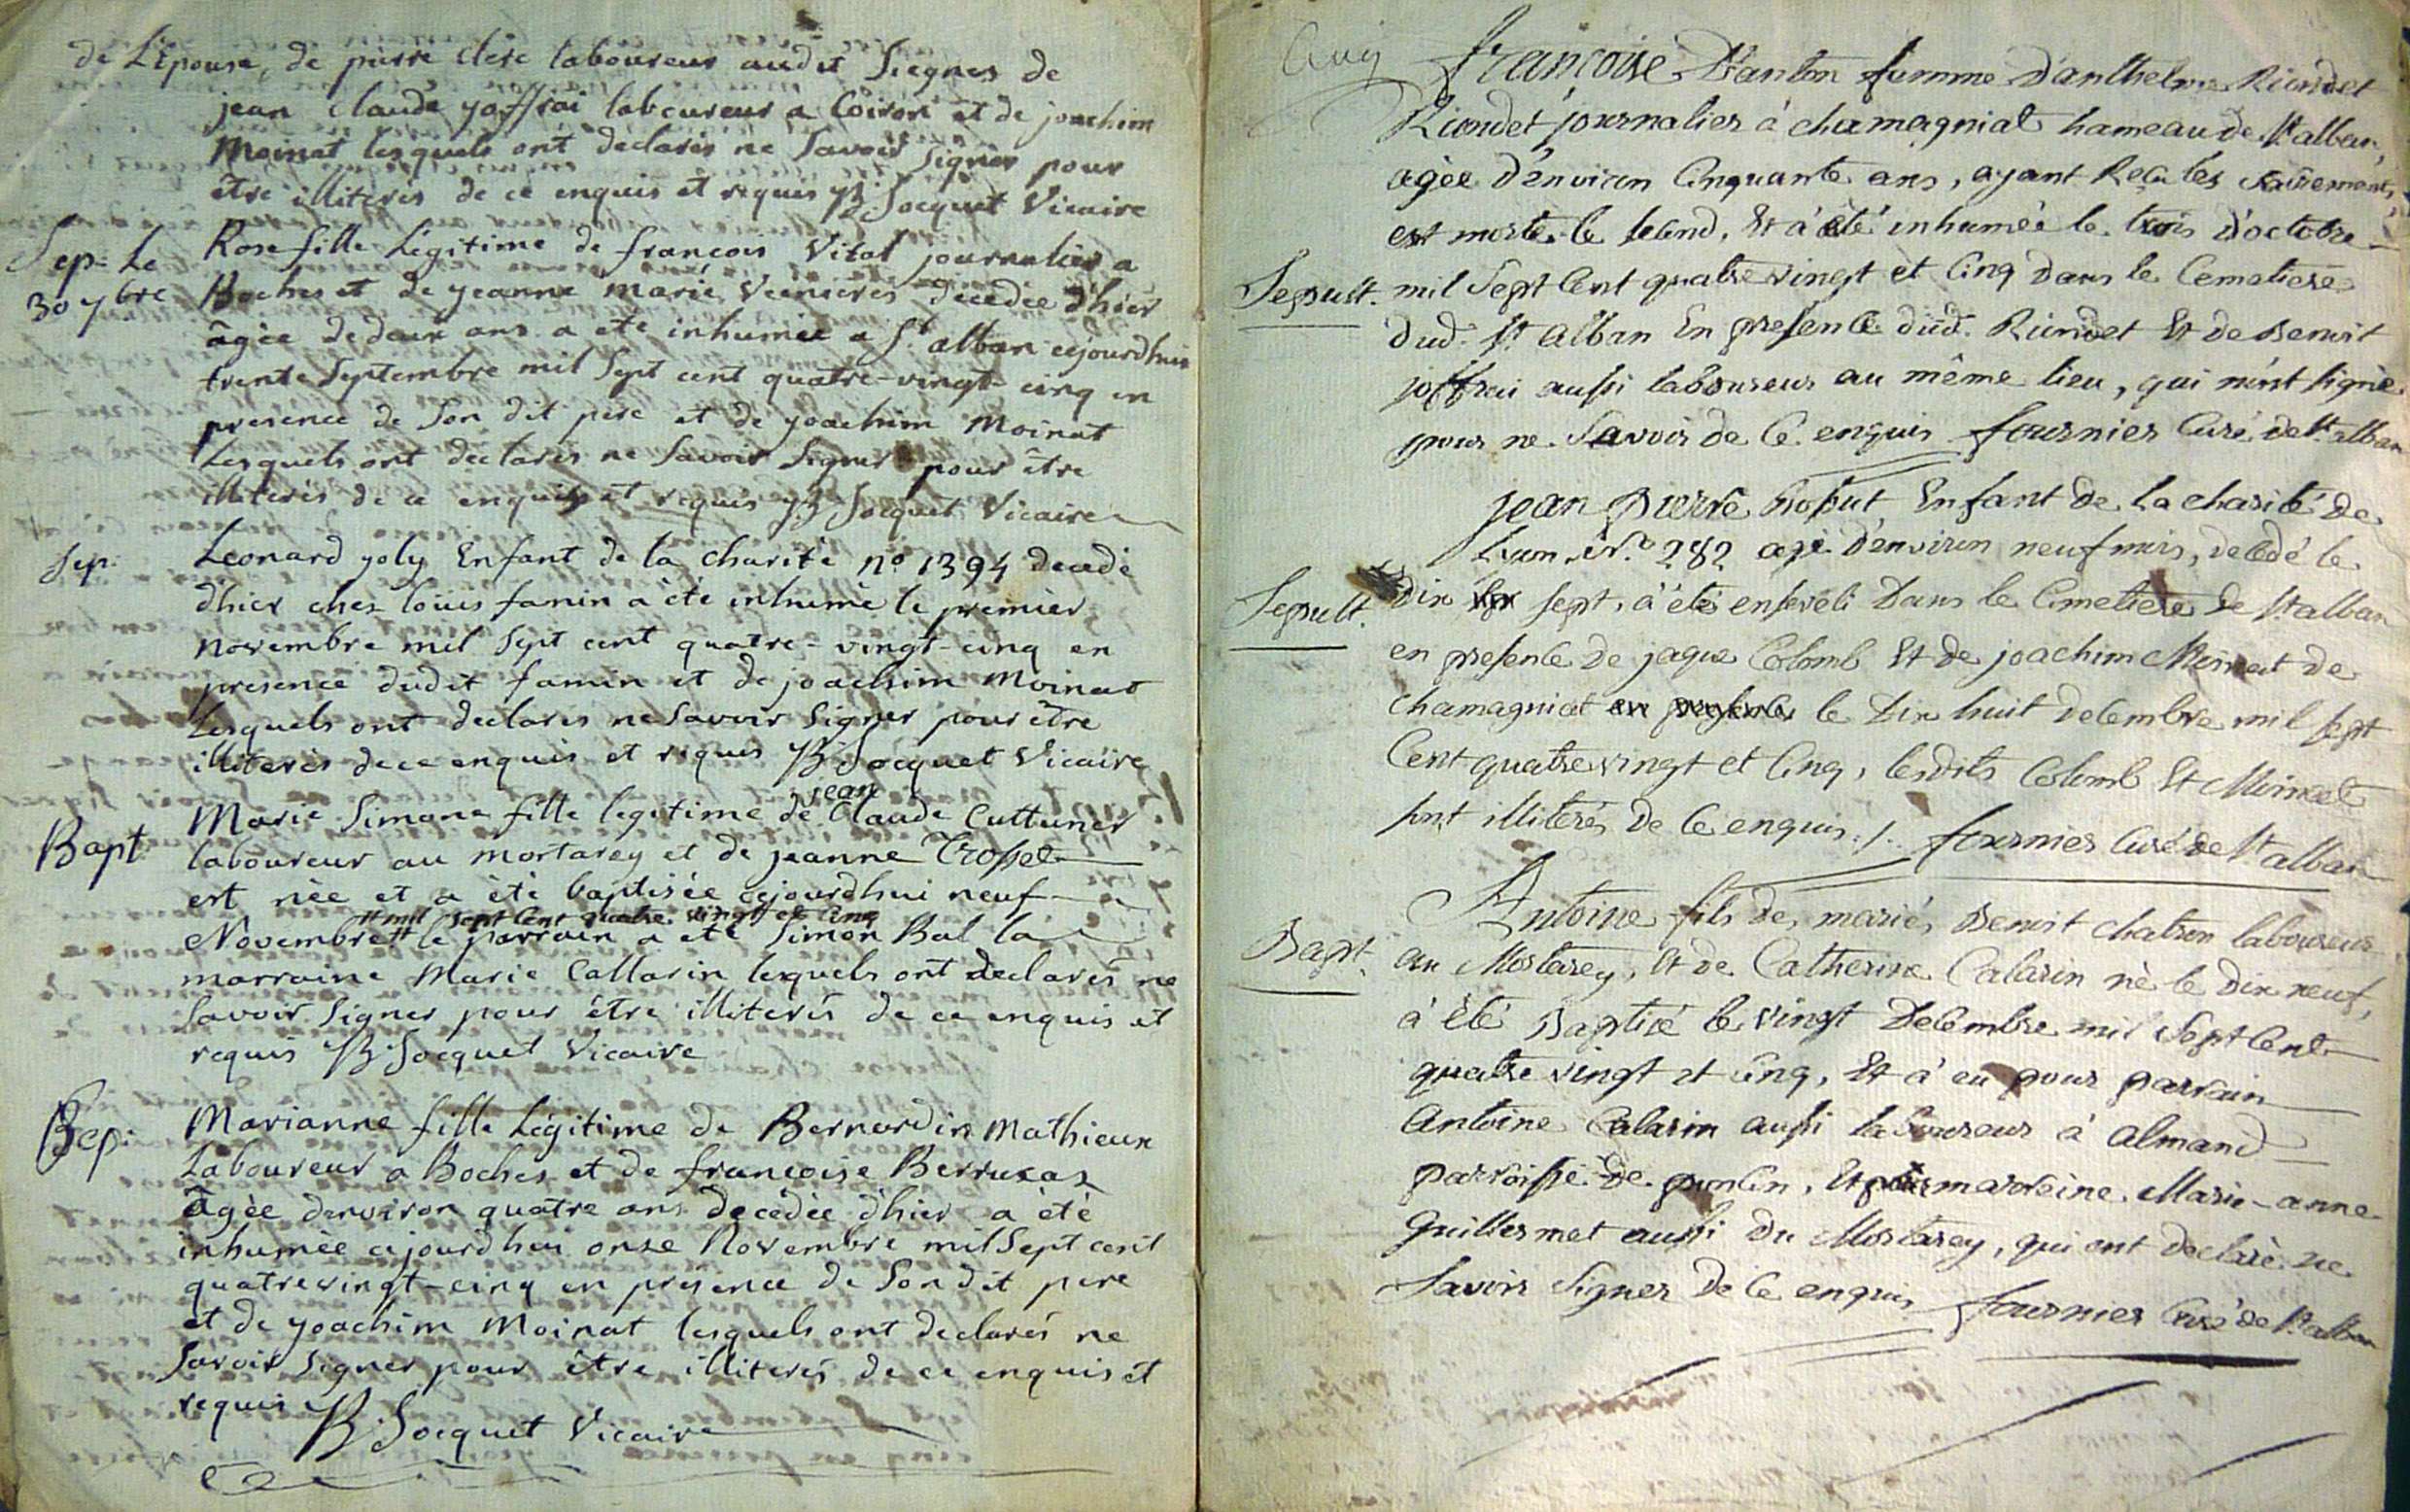 de L'épouse, de pierre clerc laboureur audit Siegnes de
jean claude yoffrai laboureur a Coiron et de joachim
Moinat lesquels ont declarés ne Savoir Signer pour
être illiterés de ce enquis et requis B: Jocquet Vicaire
Sep: Le
30 7bre
Rose fille Légitime de françois Vital journalier a
Boches et de jeanne marie decedée d'hier
âgée de deux ans a eté inhumée a St alban cejourdhui
trente Septembre mil Sept cent quatre-vingt-cinq en
presence de Son dit pere et de joachim Moinat
Lesquels ont declarés ne Savoir Signer pour être
illiterés de ce enquis et requis B Jocquet Vicaire
Sep:
Leonard joly Enfant de la charité no 1394 decedé
d'hier chez loüis fanin a été inhumé le premier
novembre mil Sept cent quatre-vingt-cinq en
presence dudit famin et de joachim Moinat
Lesquels ont declarés ne Savoir Signer pour être
illiterés de ce enquis et requis B Jocquet Vicaire
Bapt
Marie Simone fille legitime de jean Claude Cuttuner
laboureur au mortarey et de jeanne Trosset
est née et a été baptisée cejourdhui neuf
# mil sept Cent quatre vingt et Cinq
Novembre # le parrain a eté Simon Bal la
marraine Marie Callarin lesquels ont declarés ne
Savoir Signer pour être illiterés de ce enquis et
requis B: Jocquet Vicaire
Sep:
Marianne fille Légitime de Bernardin Mathieux
Laboureur a Boches et de françoise Berruxas
âgée denviron quatre ans decédée d'hier a été
inhumée cejourdhui onze Novembre mil Sept cent
quatrevingt-cinq en presence de Son dit pere
et de yoachim Moinat lesquels ont declarés ne
Savoir Signer pour être illiterés de ce enquis et
requis
B: Jocquet Vicaire
Cinq
françoise Danton femme D'anthelme Riondet
Riondet journalier à chamagniat hameau de St alban,
agée D'environ Cinquante ans, ayant Reçu les Sacrements,
est morte le second, Et a été inhumée le trois d'octobre
Sepult.
mil Sept Cent quatre vingt et Cinq Dans le Cemetiere
dud. St Alban En presence dud. Riondet Et de Benoit
joffrai aussi laboureur au même lieu, qui n'ont signé
pour ne Savoir de Ce enquis fournier Curé de St alban
jean Pierre Enfant de la charité de
Lyon N.° 282 agé d'environ neuf mois, decedé le
Sepult.
dix sept, à été enseveli Dans le Cimetiere de St alban
en presence de jaque Colomb Et de joachim Moinat de
chamagniat en presence le Dix huit decembre mil sept
Cent quatre vingt et Cinq, lesdits Colomb Et Moinat
sont illiterés De Ce enquis ./. fournier Curé de St alban
Antoine fils des mariés Benoit chatron laboureur
Bapt.
au Mortarey, Et de Catherine Calarin né le Dix neuf,
à Eté Baptisé le vingt Decembre mil Sept Cent
quatre vingt et Cinq, Et a eu pour parrain
Antoine Calarin aussi laboureur à Almand
parroisse de poncin, Et pour marreine Marie-anne
Guillermet aussi Du Mortarey, qui ont declaré ne
Savoir Signer De Ce enquis fournier Curé de St alban